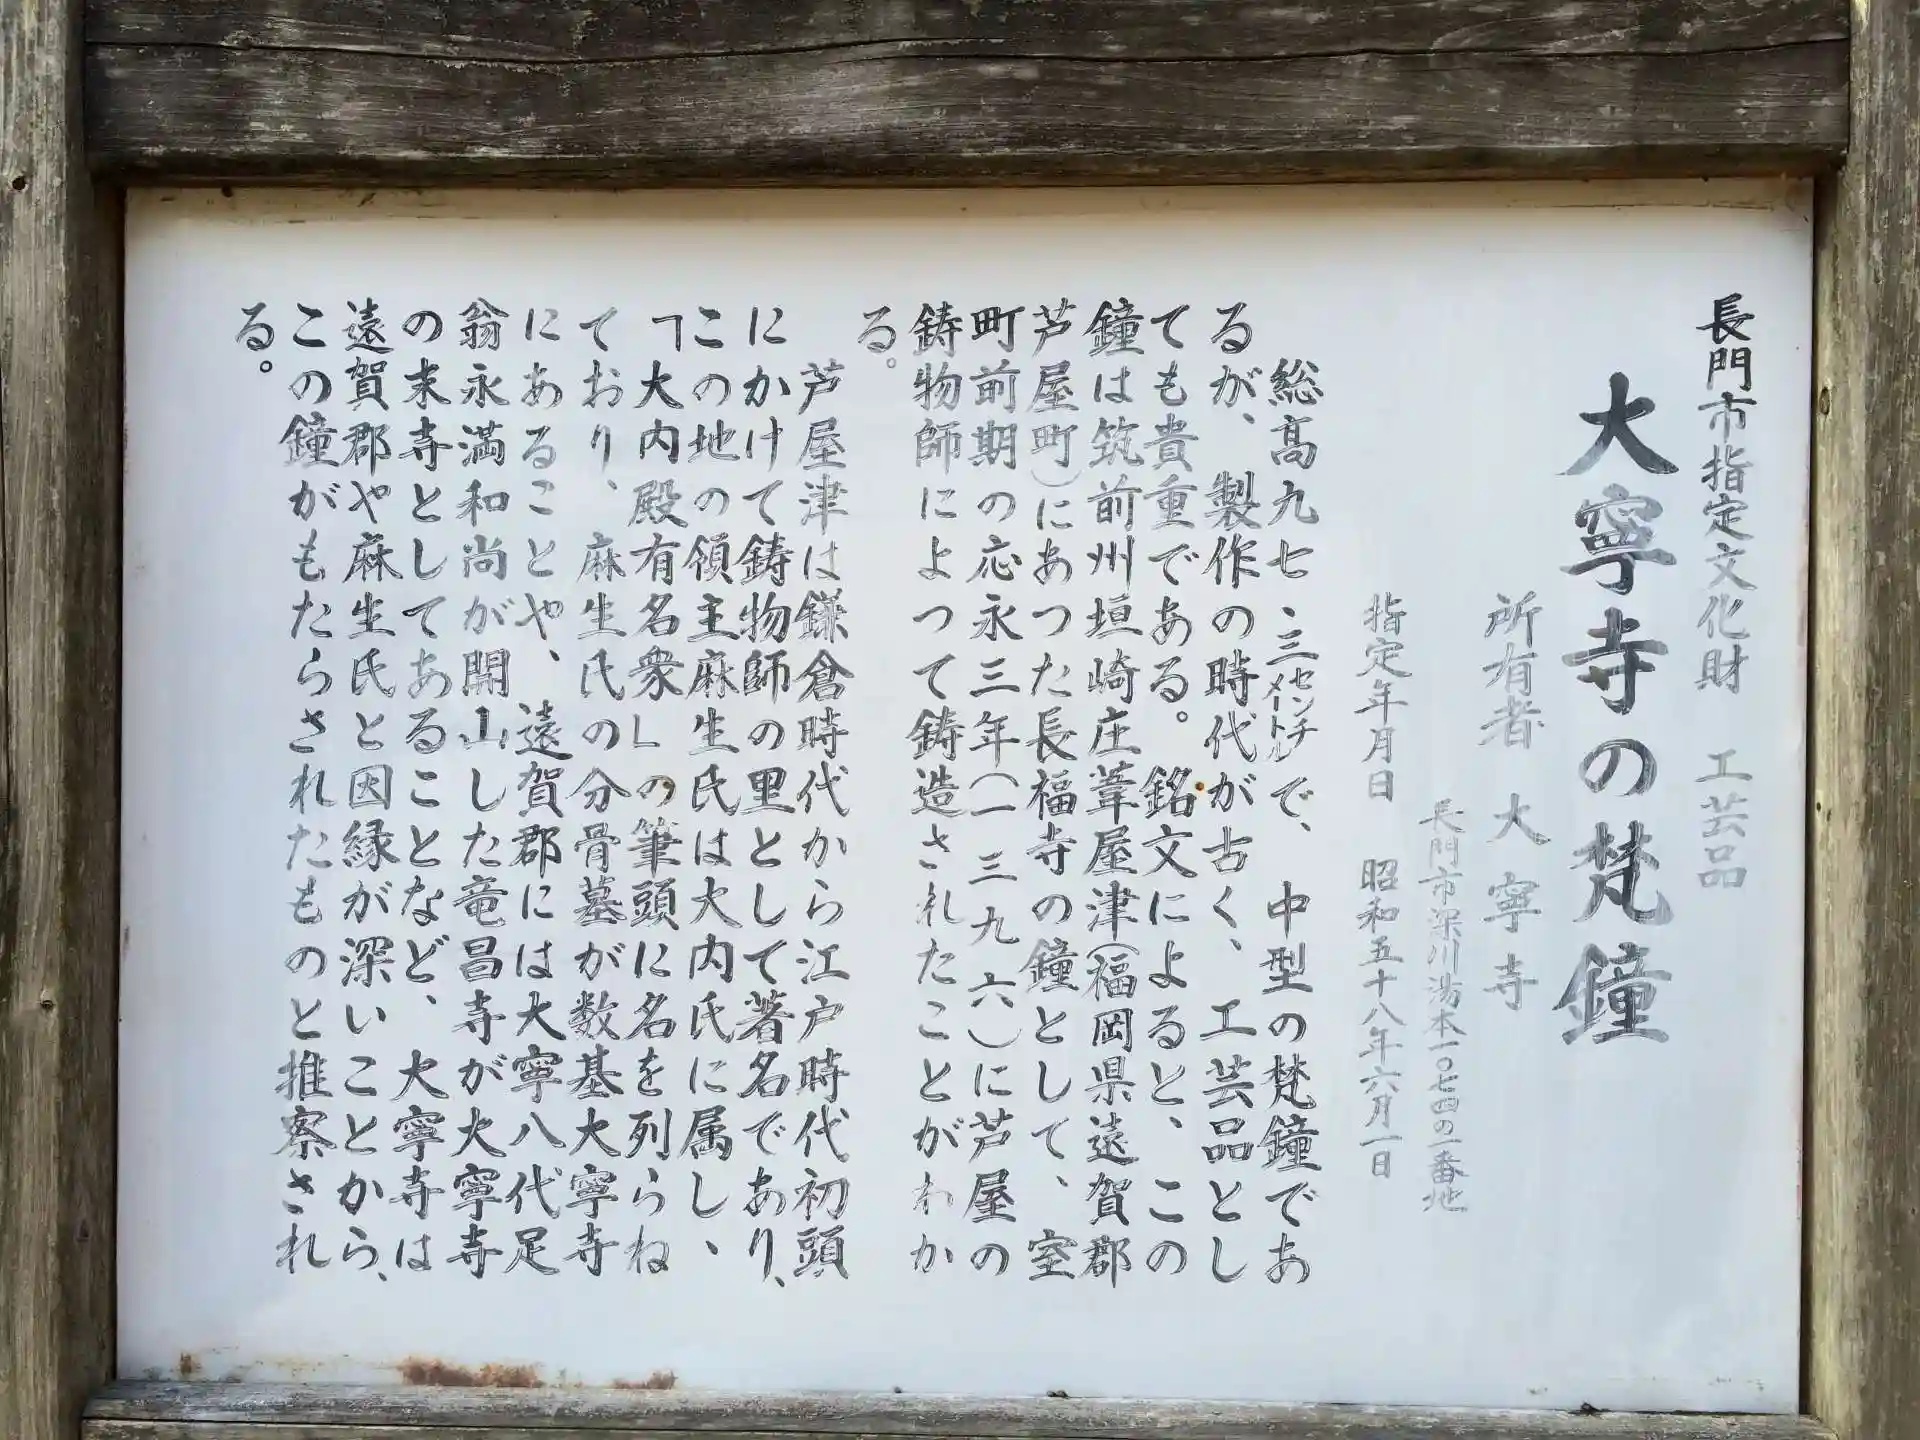 長門市指定文化財　工芸品
大寧寺の梵鐘
所有者　大寧寺
長門市深川湯本一〇七四の一番地
指定年月日　昭和五十八年六月一日
総高九七・三センチメートルで、中型の梵鐘であ
るが、製作の時代が古く、工芸品とし
ても貴重である。銘文によると、この
鐘は筑前州垣崎庄葦屋津（福岡県遠賀郡
芦屋町）にあつた長福寺の鐘として、室
町前期の応永三年（一三九六）に芦屋の
鋳物師によつて鋳造されたことがわか
る。
芦屋津は鎌倉時代から江戸時代初頭
にかけて鋳物師の里として著名であり、
この地の領主麻生氏は大内氏に属し、
「大内殿有名衆」の筆頭に名を列らね
ており、麻生氏の分骨墓が数基大寧寺
にあることや、遠賀郡には大寧八代足
翁永満和尚が開山した竜昌寺が大寧寺
の末寺としてあることなど、大寧寺は
遠賀郡や麻生氏と因縁が深いことから、
この鐘がもたらされたものと推察され
る。